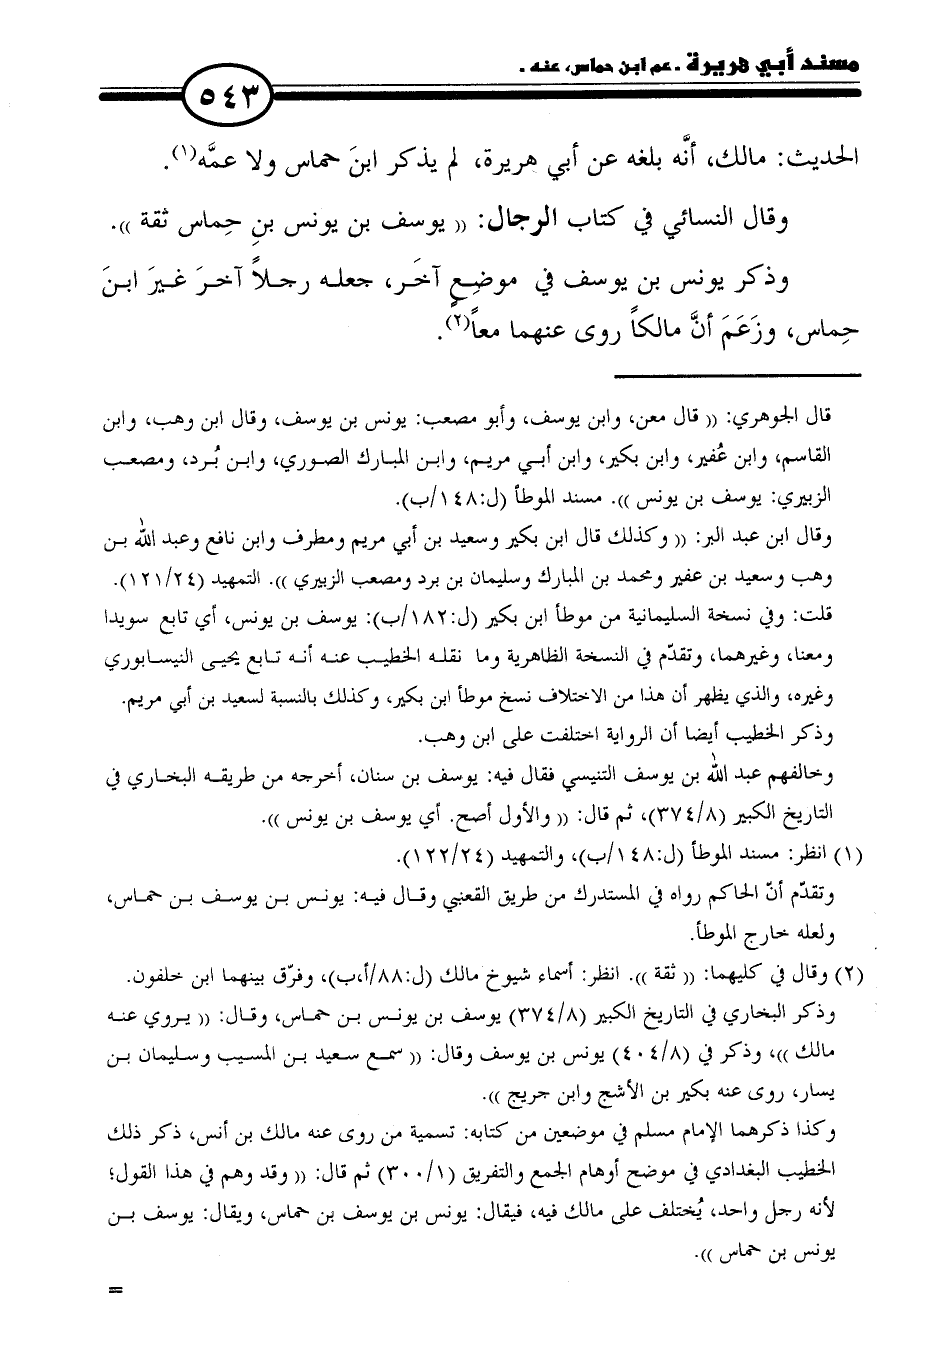 مسند أبي هريرة . عم ابن حماس، عنه .
٥٤٣
الحديث: مالك، أنَّه بلغه عن أبي هريرة، لم يذكر ابنَ حماس ولا عمَّه(١).
وقال النسائي في كتاب الرجال: (( يوسف بن يونس بنِ حِماس ثقة )).
وذكر يونس بن يوسف في موضِعٍ آخَر، جعله رجلاً آخرَ غيرَ ابنَ
حِماس، وزَعَمَ أنَّ مالكاً روى عنهما معاً(٢).
قال الجوهري: (( قال معن، وابن يوسف، وأبو مصعب: يونس بن يوسف، وقال ابن وهب، وابن
القاسم، وابن عُفير، وابن بكير، وابن أبي مريم، وابن المبارك الصوري، وابن بُرد، ومصعب
الزبيري: يوسف بن يونس )). مسند الموطأ (ل:١٤٨/ب).
وقال ابن عبد البر: (( وكذلك قال ابن بكير وسعيد بن أبي مريم ومطرف وابن نافع وعبد الله بن
وهب وسعيد بن عفير ومحمد بن المبارك وسليمان بن برد ومصعب الزبيري )). التمهيد (١٢١/٢٤).
قلت: وفي نسخة السليمانية من موطأ ابن بكير (ل:١٨٢/ب): يوسف بن يونس، أي تابع سويدا
ومعنا، وغيرهما، وتقدّم في النسخة الظاهرية وما نقله الخطيب عنه أنه تابع يحيى النيسابوري
وغيره، والذي يظهر أن هذا من الاختلاف نسخ موطأ ابن بكير، وكذلك بالنسبة لسعيد بن أبي مريم.
وذكر الخطيب أيضا أن الرواية اختلفت على ابن وهب.
وخالفهم عبد الله بن يوسف التنيسي فقال فيه: يوسف بن سنان، أخرجه من طريقه البخاري في
التاريخ الكبير (٣٧٤/٨)، ثم قال: (( والأول أصح. أي يوسف بن يونس )).
(١) انظر: مسند الموطأ (ل:١٤٨/ب)، والتمهيد (١٢٢/٢٤).
وتقدّم أنّ الحاكم رواه في المستدرك من طريق القعنبي وقال فيه: يونس بن يوسف بن حماس،
ولعله خارج الموطأ.
(٢) وقال في كليهما: (( ثقة )). انظر: أسماء شيوخ مالك (ل:٨٨/أ،ب)، وفرّق بينهما ابن خلفون.
وذكر البخاري في التاريخ الكبير (٣٧٤/٨) يوسف بن يونس بن حماس، وقال: (( يروي عنه
مالك ))، وذكر في (٤٠٤/٨) يونس بن يوسف وقال: (( سمع سعيد بن المسيب وسليمان بن
يسار، روى عنه بكير بن الأشج وابن جريج )).
وكذا ذكرهما الإمام مسلم في موضعين من كتابه: تسمية من روى عنه مالك بن أنس، ذكر ذلك
الخطيب البغدادي في موضح أوهام الجمع والتفريق (٣٠٠/١) ثم قال: (( وقد وهم في هذا القول؛
لأنه رجل واحد، يُختلف على مالك فيه، فيقال: يونس بن يوسف بن حماس، ويقال: يوسف بن
يونس بن حماس )).
=